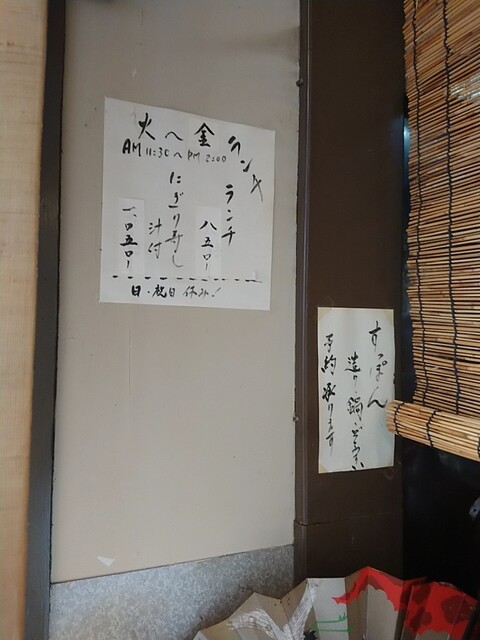 火〜金ランチ
AM 11:30〜PM 2:00
ランチ
八五〇ー
にぎり寿し
汁付
一、〇五〇ー
日・祝日 休み!
すっぽん
造り・鍋・ぞうすい
予約承ります